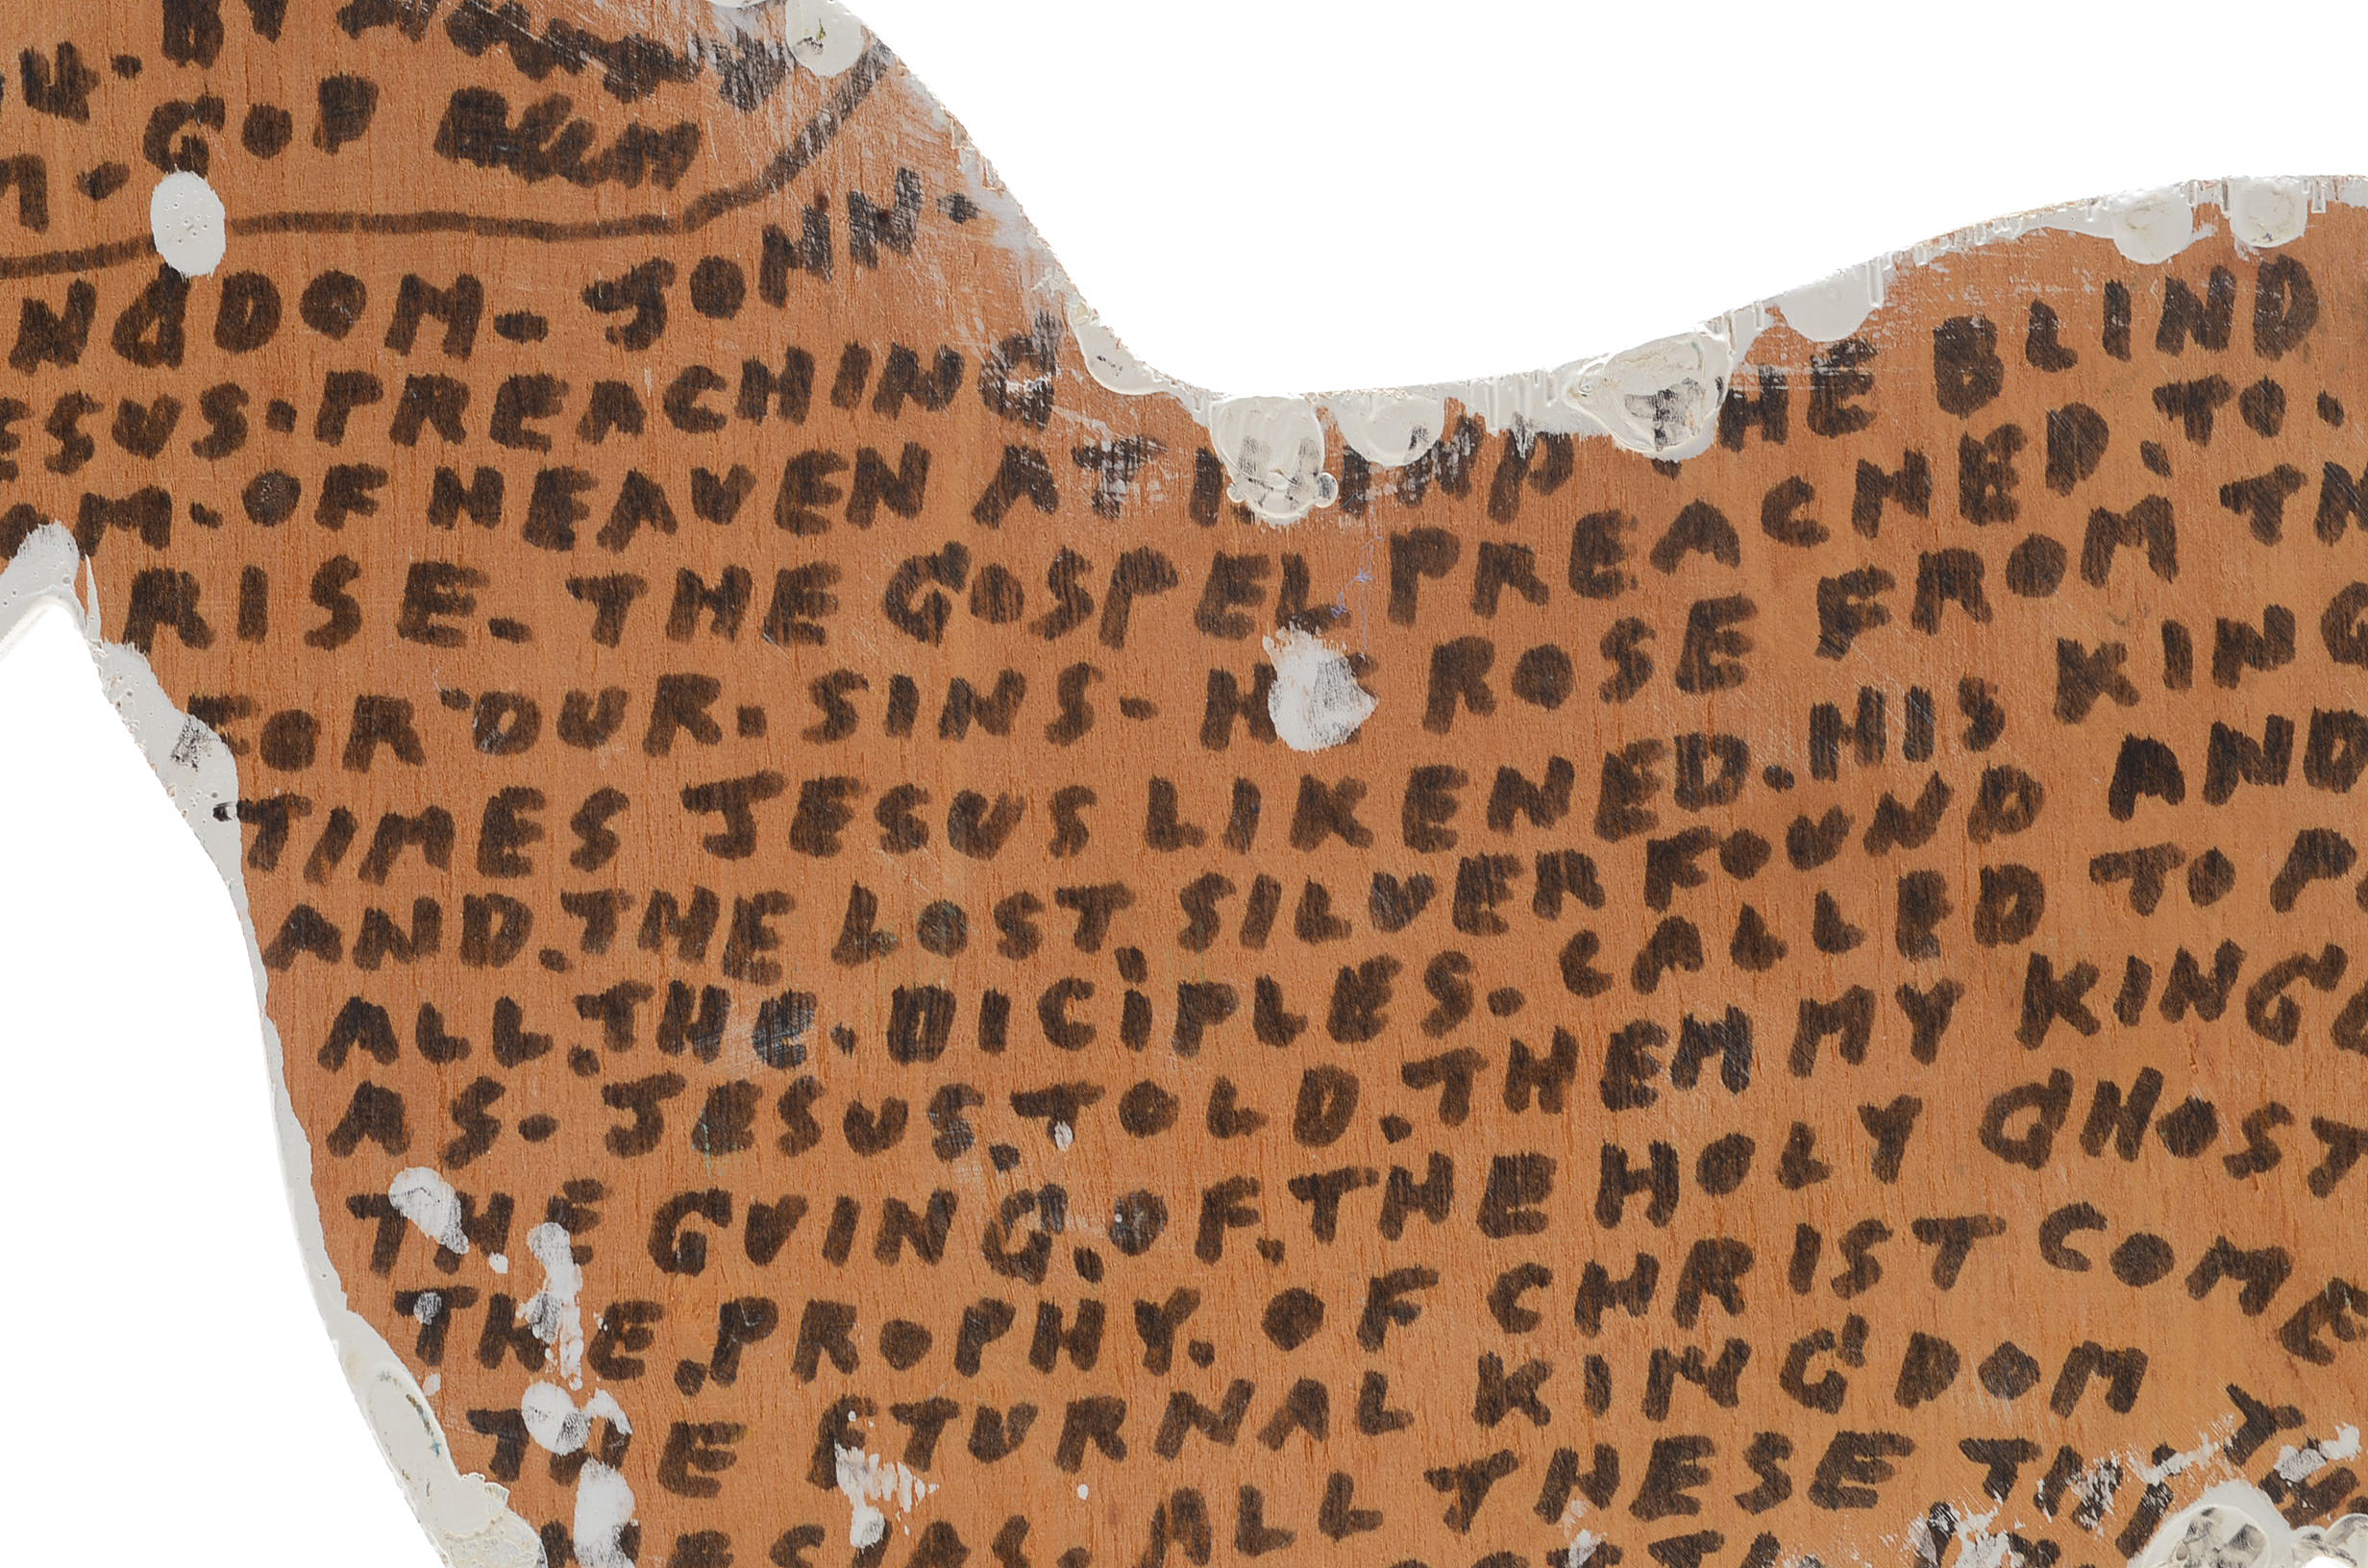 U. BY
M. GOD
NGDOM- JOHN.
ESUS. PREACHING
OM. OF HEAVEN AT HAND THE BLIND
RISE. THE GOSPEL PREACHED. TO.
FOR OUR. SINS- HE ROSE FROM TH
TIMES JESUS LIKENED. HIS KING
AND. THE LOST. SILVER FOUND AND
ALL. THE. DICIPLES. CALLED TO P
AS. JESUS. TOLD. THEM MY KINGD
THE GVING. OF. THE HOLY GHOST
THE. PROPHY. OF CHRIST COME
THE ETURNAL KINGDOM
ESIAS. ALL THESE